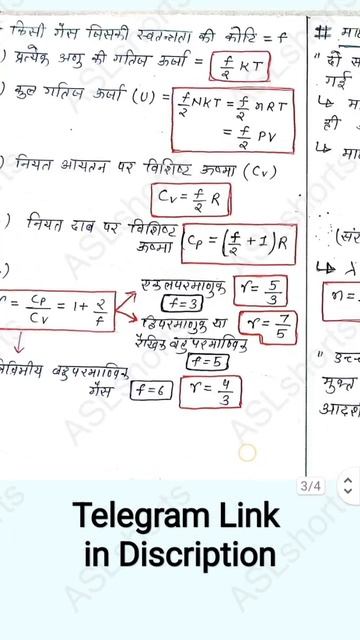 किसी गैस जिसकी स्वतन्त्रता की कोटि = f
) प्रत्येक अणु की गतिज ऊर्जा = f/2 KT
) कुल गतिज ऊर्जा (U) = f/2 NKT = f/2 nRT
= f/2 PV
) नियत आयतन पर विशिष्ट ऊष्मा (Cv)
Cv = f/2 R
) नियत दाब पर विशिष्ट ऊष्मा Cp = (f/2 + 1) R
)
r = Cp/Cv = 1 + 2/f
एकलपरमाणुक r = 5/3
f = 3
द्विपरमाणुक या r = 7/5
रैखिक बहुपरमाण्विक
f = 5
त्रिविमीय बहुपरमाण्विक
गैस f = 6 r = 4/3
#
" दो
गई
ही
(सं
λ
n =
" उच्च
मुक्त
आदर्श
3/4
Telegram Link
in Discription
ASLshorts